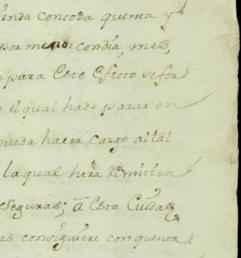 enda con toda quenta y
por menor con dia, mes,
a para Este Efecto se for
o el qual ha de parar en
pueda hacer cargo al tal
la qual hira Remitien
Seguras; a Esta Ciudad
as consiguiere con quenta